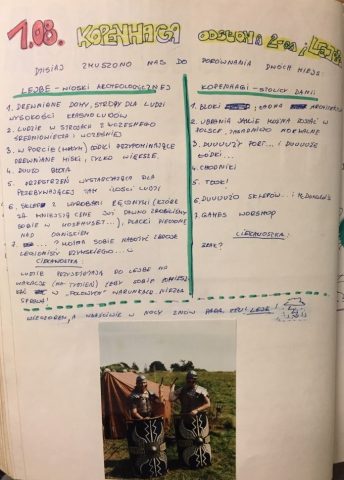 1.08. KOPENHAGA ODSŁONA 2-GA I LEJRE
DZISIAJ ZMUSZONO NAS DO PORÓWNANIA DWÓCH MIEJSC:
LEJRE - WIOSKI ARCHEOLOGICZNEJ
1. DREWNIANE DOMY, STRZECHY DLA LUDZI
WYSOKOŚCI KRASNOLUDÓW
2. LUDZIE W STROJACH Z WCZESNEGO
ŚREDNIOWIECZA I WCZEŚNIEJ
3. W PORCIE ŁÓDKI PRZYPOMINAJĄCE
DREWNIANE MISKI, TYLKO WIĘKSZE
4. DUUŻO BŁOTA
5. PRZESTRZEŃ WYSTARCZAJĄCA DLA
PRZEBYWAJĄCEJ TAM ILOŚCI LUDZI
6. SKLEP Z WYROBAMI RĘCZNYMI (KTÓRE
ZA MNIEJSZĄ CENĘ JUŻ DAWNO ZROBILIŚMY
SOBIE W ), PLACKI PIECZONE
NAD OGNISKIEM
7. ? MOŻNA SOBIE NAŁOŻYĆ ZBROJĘ
LEGIONISTY RZYMSKIEGO...
CIEKAWOSTKA
LUDZIE PRZYJEŻDŻAJĄ DO LEJRE NA
WAKACJE (NA TYDZIEŃ) ŻEBY SOBIE POMIESZ-
KAĆ W "POLOWYCH" WARUNKACH. NIEZŁA
SPRAWA!
KOPENHAGI - STOLICY DANII
1. BLOKI,
2. UBRANIA JAKIE MOŻNA KUPIĆ W
POLSCE, NORMALNE
3. DUUUUŻY PORT... I DUUUUŻE
ŁÓDKI...
4. CHODNIKI
5. TŁOK!
6. DUUUUŻO SKLEPÓW... I McDONALD'S
7. GAMES WORKSHOP
CIEKAWOSTKA:
BRAK?
WIECZOREM, A WŁAŚCIWIE W NOCY ZNÓW